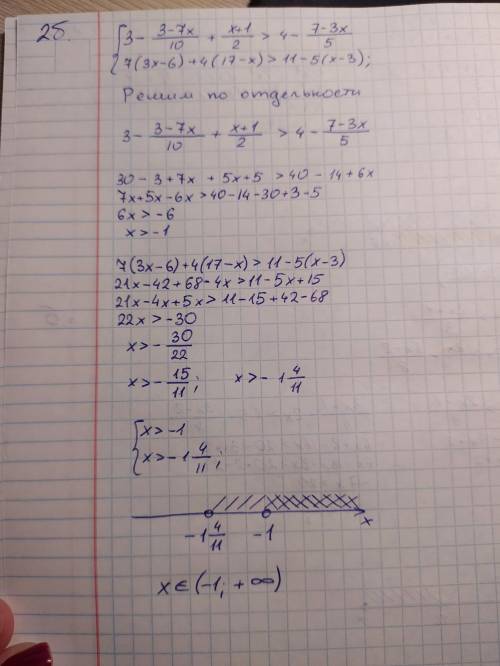 2б.
{3 - (3-7x)/10 + (x+1)/2 > 4 - (7-3x)/5
{7(3x-6)+4(17-x)>11-5(x-3);
Решим по отдельности
3 - (3-7x)/10 + (x+1)/2 > 4 - (7-3x)/5
30 - 3 + 7x + 5x + 5 > 40 - 14 + 6x
7x+5x-6x>40-14-30+3-5
6x > -6
x > -1
7(3x-6)+4(17-x)>11-5(x-3)
21x-42+68-4x>11-5x+15
21x-4x+5x>11-15+42-68
22x > -30
x > - 30/22
x > - 15/11; x > - 1 4/11
{x > -1
{x > -1 4/11;
x
-1 4/11 -1
x ∈ (-1; + ∞)